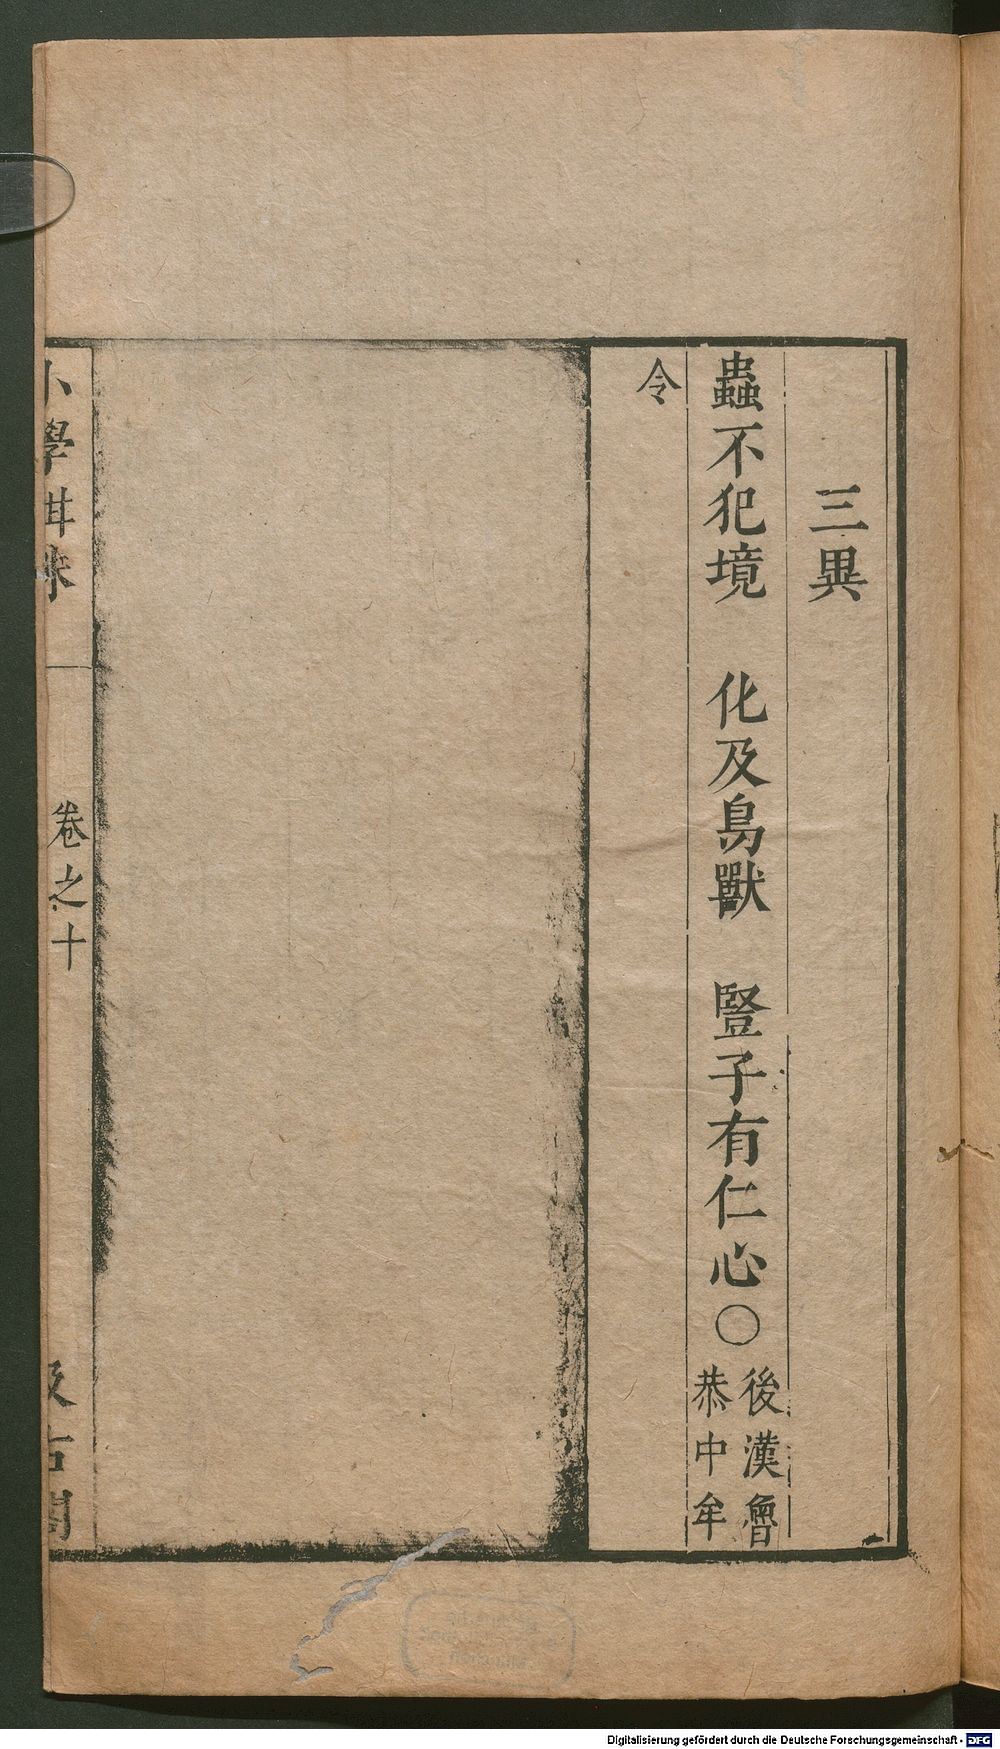 三異
蟲不犯境　化及鳥獸　豎子有仁心〇後漢魯
恭中牟
令
小學紺珠
卷之十
汲古閣
Digitalisierung gefördert durch die Deutsche Forschungsgemeinschaft - DFG